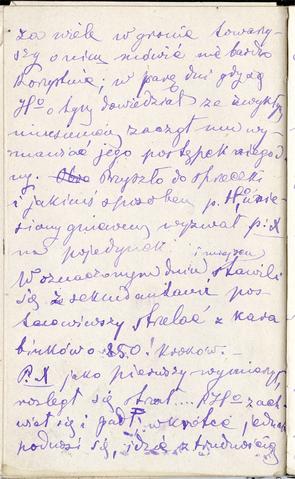 za wiele w gronie towarzy-
szy o nim mówić nie bardzo
korzystnie; w parę dni gdy się
Ho o tym dowiedział ze zwykłą
zaczął mu wy-
mawiać jego postępek niegod-
ny. Przyszło do sprzeczki
i jakimś sposobem p. Ho unie-
siony gniewem wyzwał p. X
na pojedynek. i miejscu
W oznaczonym dniu stawili
się z sekundantami pos-
tanowiwszy strzelać z kara
binków o 150! kroków. -
P. X jako pierwszy wymierzył,
rozległ się strzał... P. Ho zach-
wiał się i padł; wkrótce, jednak
podnosi się, idzie z trudnością